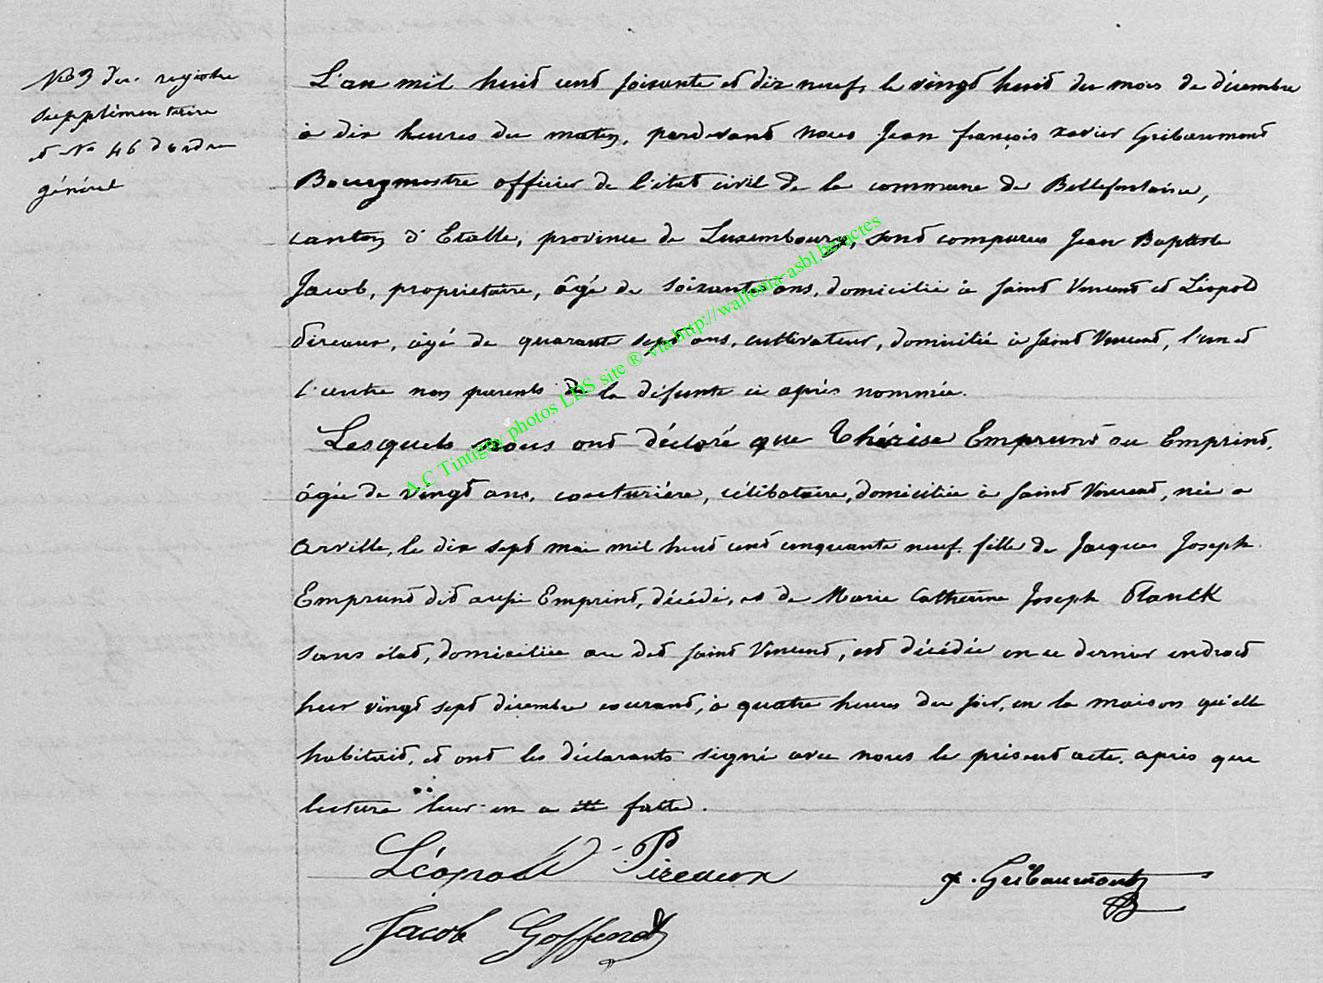 No 3 du registre
supplémentaire
et No 46 d'ordre
général
L'an mil huit cent soixante et dix neuf, le vingt huit du mois de décembre
à dix heures du matin, pardevant nous Jean françois xavier Gribaumont
Bourgmestre officier de l'état civil de la commune de Bellefontaine,
canton d'Etalle, province de Luxembourg, sont comparus Jean Baptiste
Jacob, propriétaire, âgé de soixante ans, domicilié à Saint Vincent et Léopold
Pireaux, âgé de quarante sept ans, cultivateur, domicilié à Saint Vincent, l'un et
l'autre non parents de la défunte ci après nommée.
Lesquels nous ont déclaré que Thérèse Emprunt ou Emprint,
âgée de vingt ans, couturière, célibataire, domiciliée à Saint Vincent, née a
Arville, le dix sept mai mil huit cent cinquante neuf, fille de Jacques Joseph
Emprunt dit aussi Emprint, décédé, et de Marie Catherine Joseph Planck
sans état, domiciliée au dit Saint Vincent, est décédée en ce dernier endroit
hier vingt sept décembre courant, à quatre heures du soir, en la maison qu'elle
habitait, et ont les déclarants signé avec nous le présent acte, après que
lecture leur en a été faite.
Léopold Pireaux
x. Gribaumont
Jacob Goffinet
A.C Tintigny photos LDS site ® via http://wallonia-asbl.be/actes